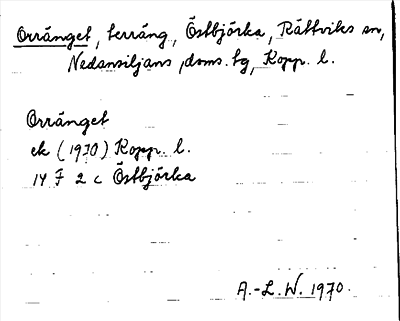 Orränget, terräng, Östbjörka, Rättviks sn,
Nedansiljans doms. tg, Kopp. l.
Orränget
ek (1970) Kopp. l.
14 F 2 c Östbjörka
A.-L. W. 1970.